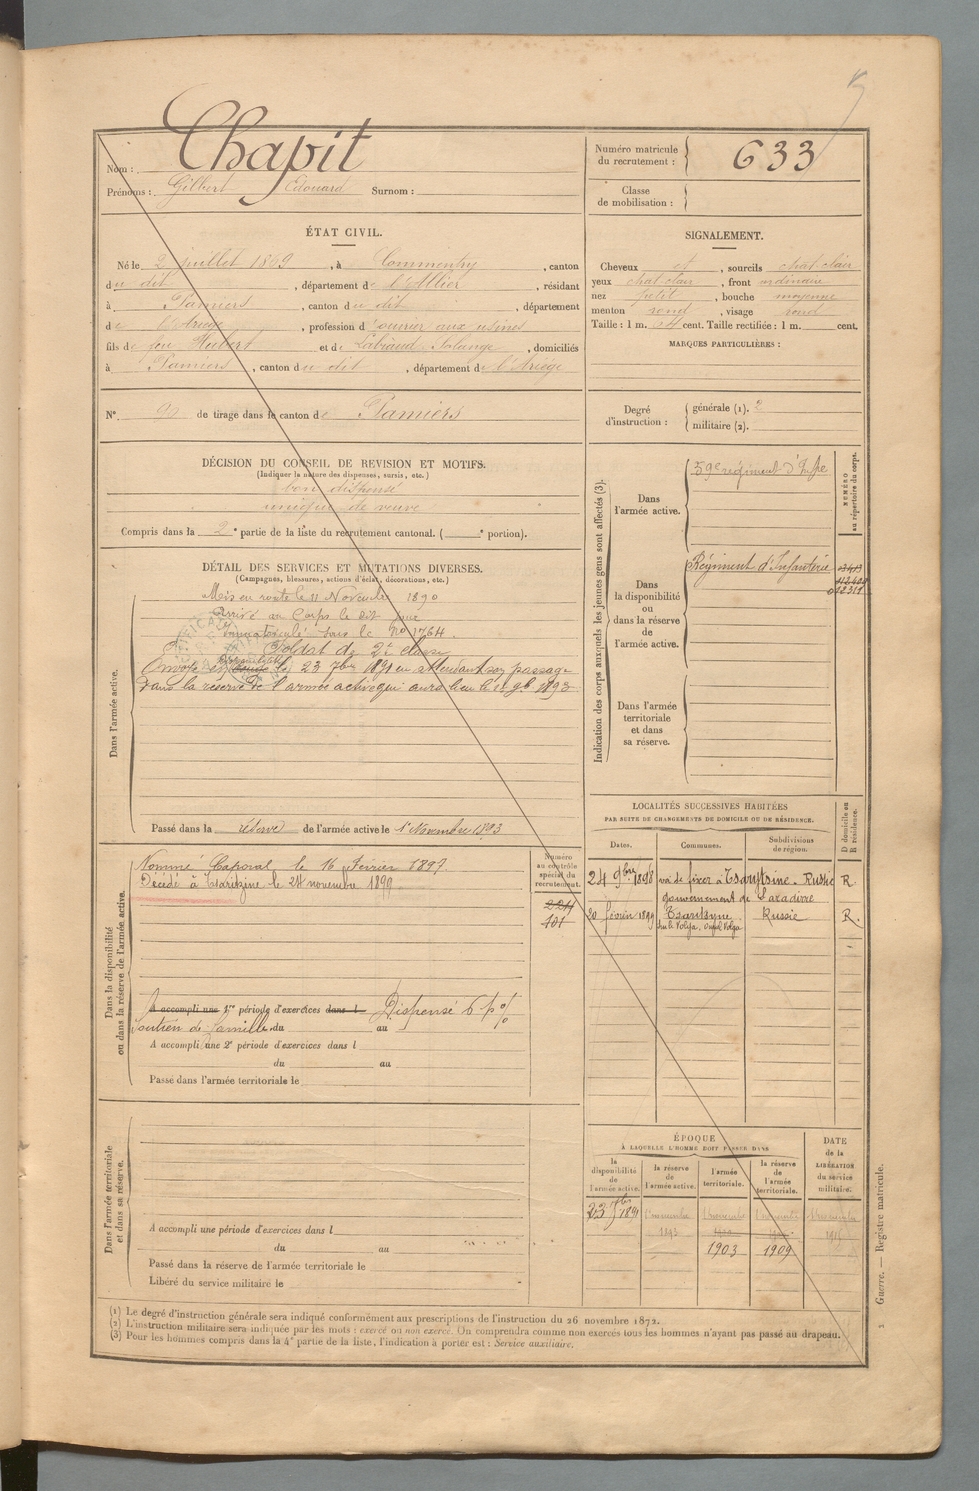 Nom : Chapit
Prénoms : Gilbert Edouard Surnom :
Numéro matricule du recrutement : 633
Classe de mobilisation :
ÉTAT CIVIL.
Né le 2 juillet 1869, à Commentry, canton
du dit, département de l'Allier, résidant
à Pamiers, canton du dit, département
de l'Ariège, profession d'ouvrier aux usines
fils de feu Hubert et de Labiaud Solange, domiciliés
à Pamiers, canton du dit, département de l'Ariège
N° 90 de tirage dans le canton de Pamiers
SIGNALEMENT.
Cheveux et, sourcils chat-clair
yeux chat-clair, front ordinaire
nez petit, bouche moyenne
menton rond, visage rond
Taille : 1 m. 64 cent. Taille rectifiée : 1 m. cent.
MARQUES PARTICULIÈRES :
Degré d'instruction : générale (1). 2
militaire (2).
DÉCISION DU CONSEIL DE REVISION ET MOTIFS.
(Indiquer la nature des dispenses, sursis, etc.)
bon dispensé
unique de veuve
Compris dans la 2e partie de la liste du recrutement cantonal. ( e portion).
DÉTAIL DES SERVICES ET MUTATIONS DIVERSES.
(Campagnes, blessures, actions d'éclat, décorations, etc.)
Dans l'armée active.
Mis en route le 11 Novembre 1890
Arrivé au Corps le dit jour
Immatriculé sous le No 1764.
Soldat de 2e classe
Envoyé en disponibilité le 23 7bre 1891 en attendant son passage
dans la réserve de l'armée active qui aura lieu le 1er 9bre 1893
Passé dans la réserve de l'armée active le 1er Novembre 1893
Indication des corps auxquels les jeunes gens sont affectés (3).
NUMÉRO au répertoire du corps.
Dans l'armée active.
59e régiment d'Infie
Dans la disponibilité ou dans la réserve de l'armée active.
Régiment d'Infanterie
012311
Dans l'armée territoriale et dans sa réserve.
LOCALITÉS SUCCESSIVES HABITÉES
PAR SUITE DE CHANGEMENTS DE DOMICILE OU DE RÉSIDENCE.
Dates. Communes. Subdivisions de région. D domicile ou R résidence.
24 9bre 1898 va se fixer à Tsarytsine - Russie R.
gouvernement de
20 février 1899 Tsaritzyne Russie R.
sur le Volga,
Dans la disponibilité ou dans la réserve de l'armée active.
Numéro au contrôle spécial du recrutement.
Nommé Caporal le 16 Février 1897.
Décédé à Tsaritzine le 24 novembre 1899.
2211
101
A accompli une 1re période d'exercices dans l Dispensé 6 p %
soutien de famille du au
A accompli une 2e période d'exercices dans l
du au
Passé dans l'armée territoriale le
Dans l'armée territoriale et dans sa réserve.
A accompli une période d'exercices dans l
du au
Passé dans la réserve de l'armée territoriale le
Libéré du service militaire le
ÉPOQUE
À LAQUELLE L'HOMME DOIT PASSER DANS
la disponibilité de l'armée active. la réserve de l'armée active. l'armée territoriale. la réserve de l'armée territoriale. DATE de la LIBÉRATION du service militaire.
23 7bre 1891 1er novembre 1893
1903 1909
(1) Le degré d'instruction générale sera indiqué conformément aux prescriptions de l'instruction du 26 novembre 1872.
(2) L'instruction militaire sera indiquée par les mots : exercé ou non exercé. On comprendra comme non exercés tous les hommes n'ayant pas passé au drapeau.
(3) Pour les hommes compris dans la 4e partie de la liste, l'indication à porter est : Service auxiliaire.
Guerre. — Registre matricule.